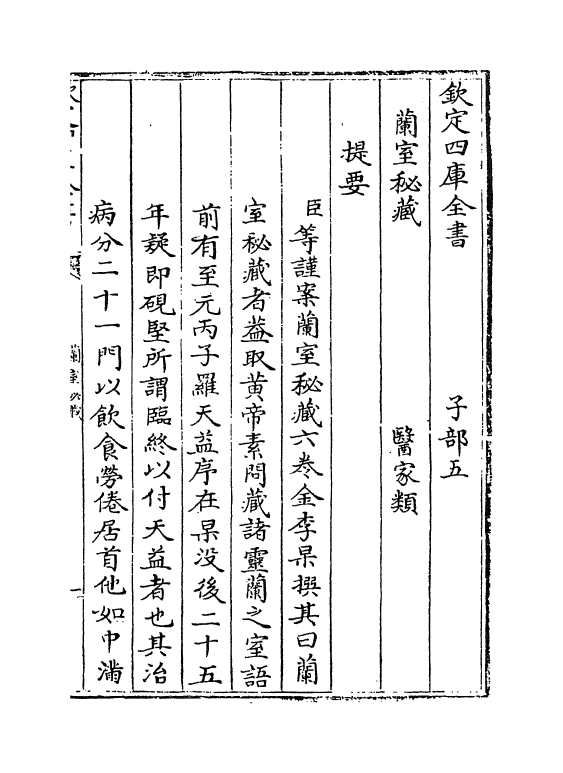 欽定四庫全書　子部五
蘭室秘藏　醫家類
提要
臣等謹案蘭室秘藏六卷金李杲撰其曰蘭
室秘藏者葢取黄帝素問藏諸靈蘭之室語
前有至元丙子羅天益序在杲没後二十五
年疑即硯堅所謂臨終以付天益者也其治
病分二十一門以飲食勞倦居首他如中滿
蘭室秘藏
一